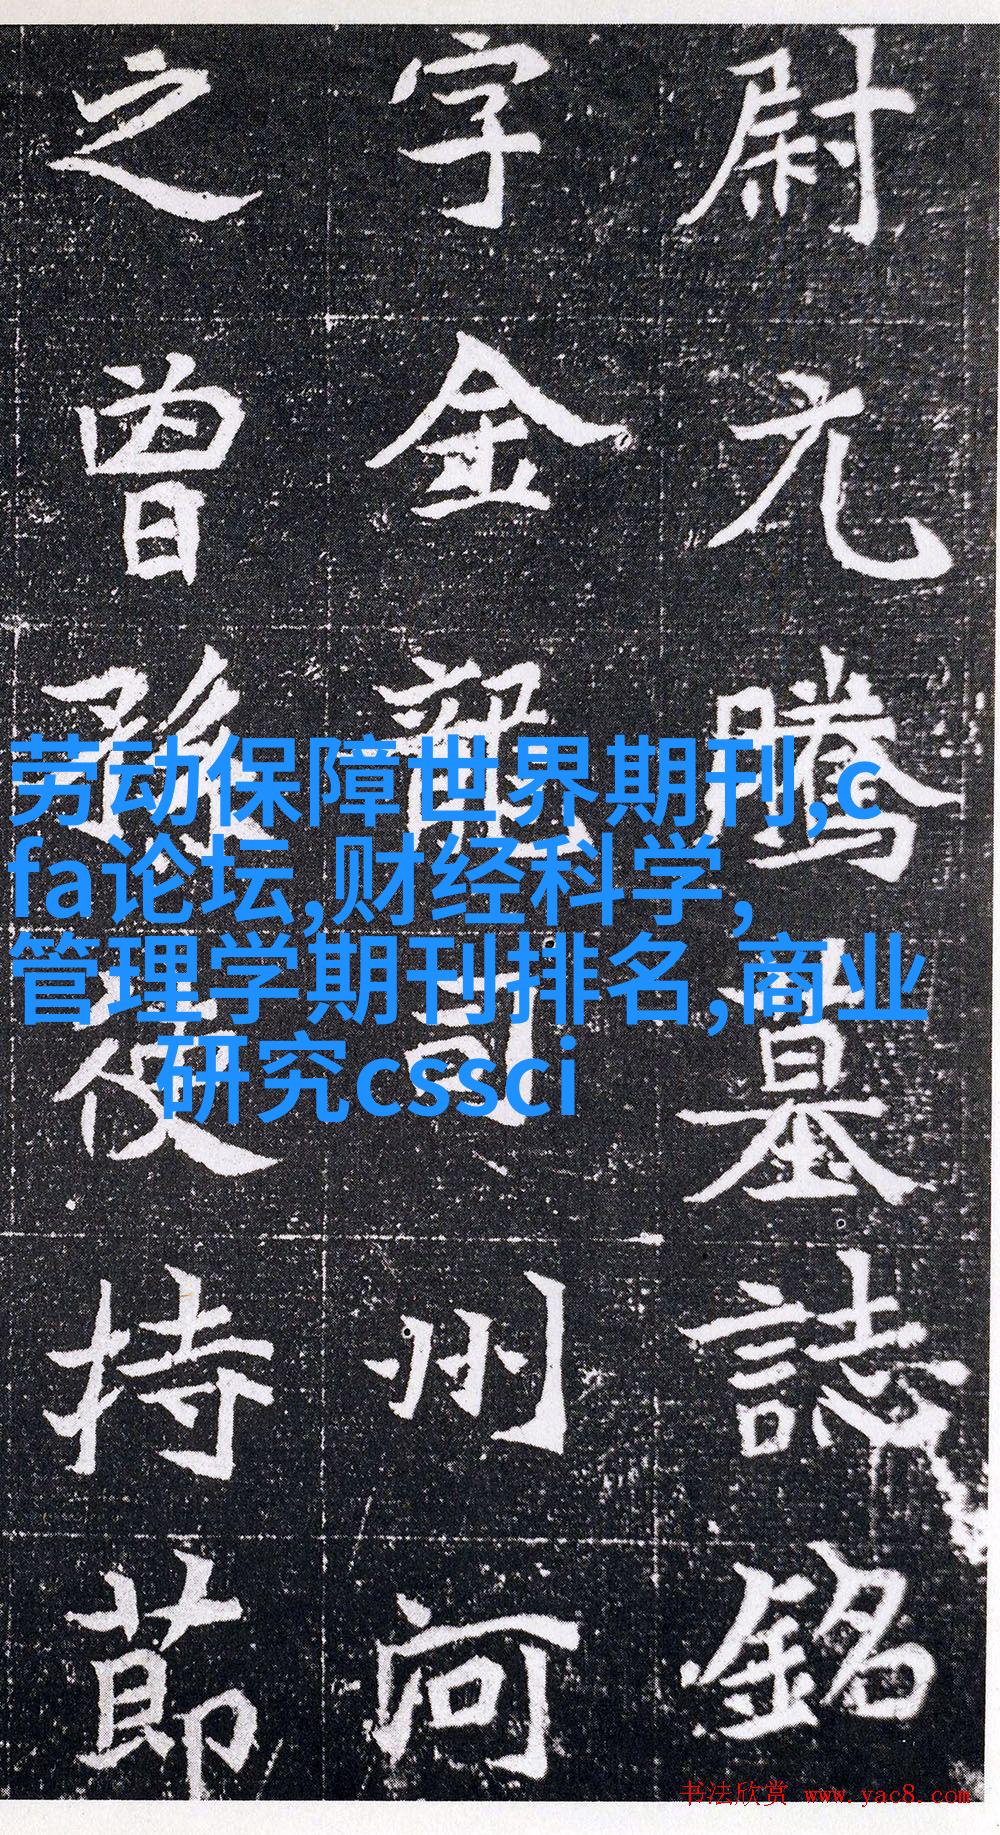 尉元騰墓誌銘
字金龍司州河
之曾孫使持節
劳动保障世界期刊,c
fa论坛,财经科学,
管理学期刊排名,商业
研究cssci
书法欣赏 www.yac8.com